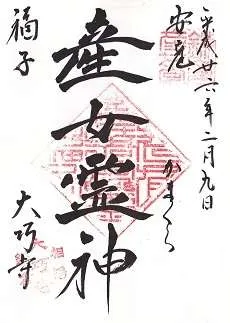 平成廿六年二月九日
安産
かまくら
産女霊神
福子
大巧寺